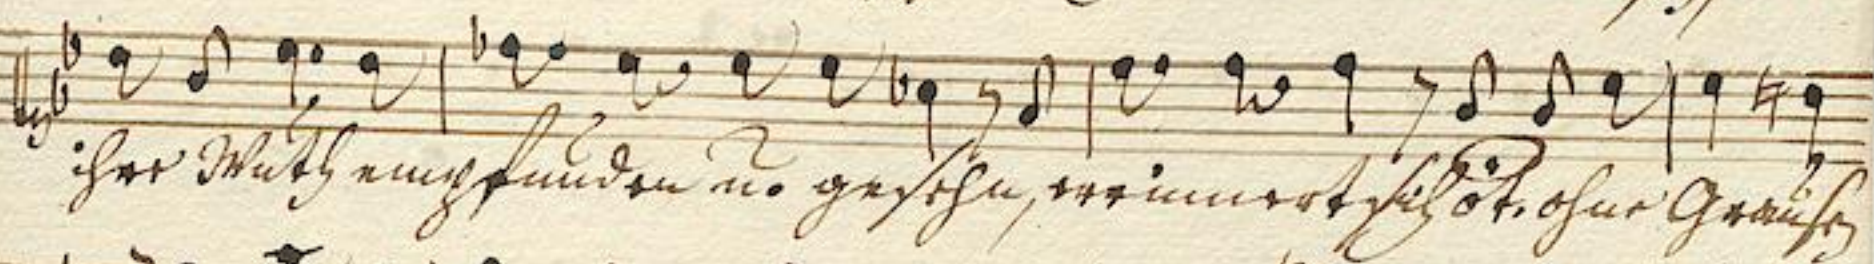 ihre Wuth empfunden u. gesehn, erinnert sich ohne Grausen